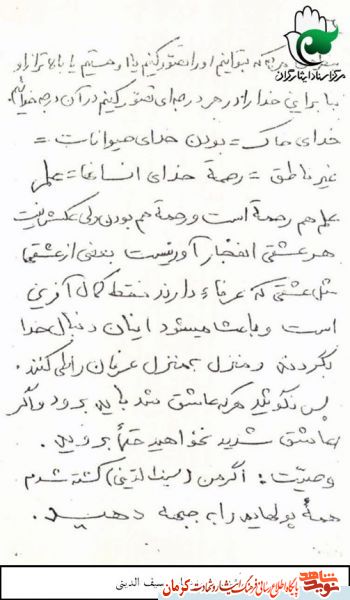 مرکز اسناد ایثارگران
که بتوانیم او را تصور کنیم یا او هستیم یا بالاتر از او
بنابراین خدا را در هر درجه‌ای تصور کنیم در آن درجه
خدای خاک = بودن خدای حیوانات =
غیر ناطق = رحمة خدای انسانها = علم
علم هم رحمة است و رحمة هم بودن ولی عکسش نیست
هر عشقی انفجار آور نیست بعضی از عشقها
مثل عشقی که عرفاء دارند فقط کمال آفرین
است و باعث میشود اینان دنبال خدا
بگردند و منزل به منزل عرفان را طی کنند.
پس نگوئید هر که عاشق شد باید برود و اگر
عاشق شدید نخواهید حتماً بروید.
وصیت: اگر من (سیف الدینی) کشته شدم
همهٔ پولهایم را به جبهه دهید.
سیف الدینی
نوید شاهد پایگاه اطلاع رسانی فرهنگ ایثار و شهادت کرمان